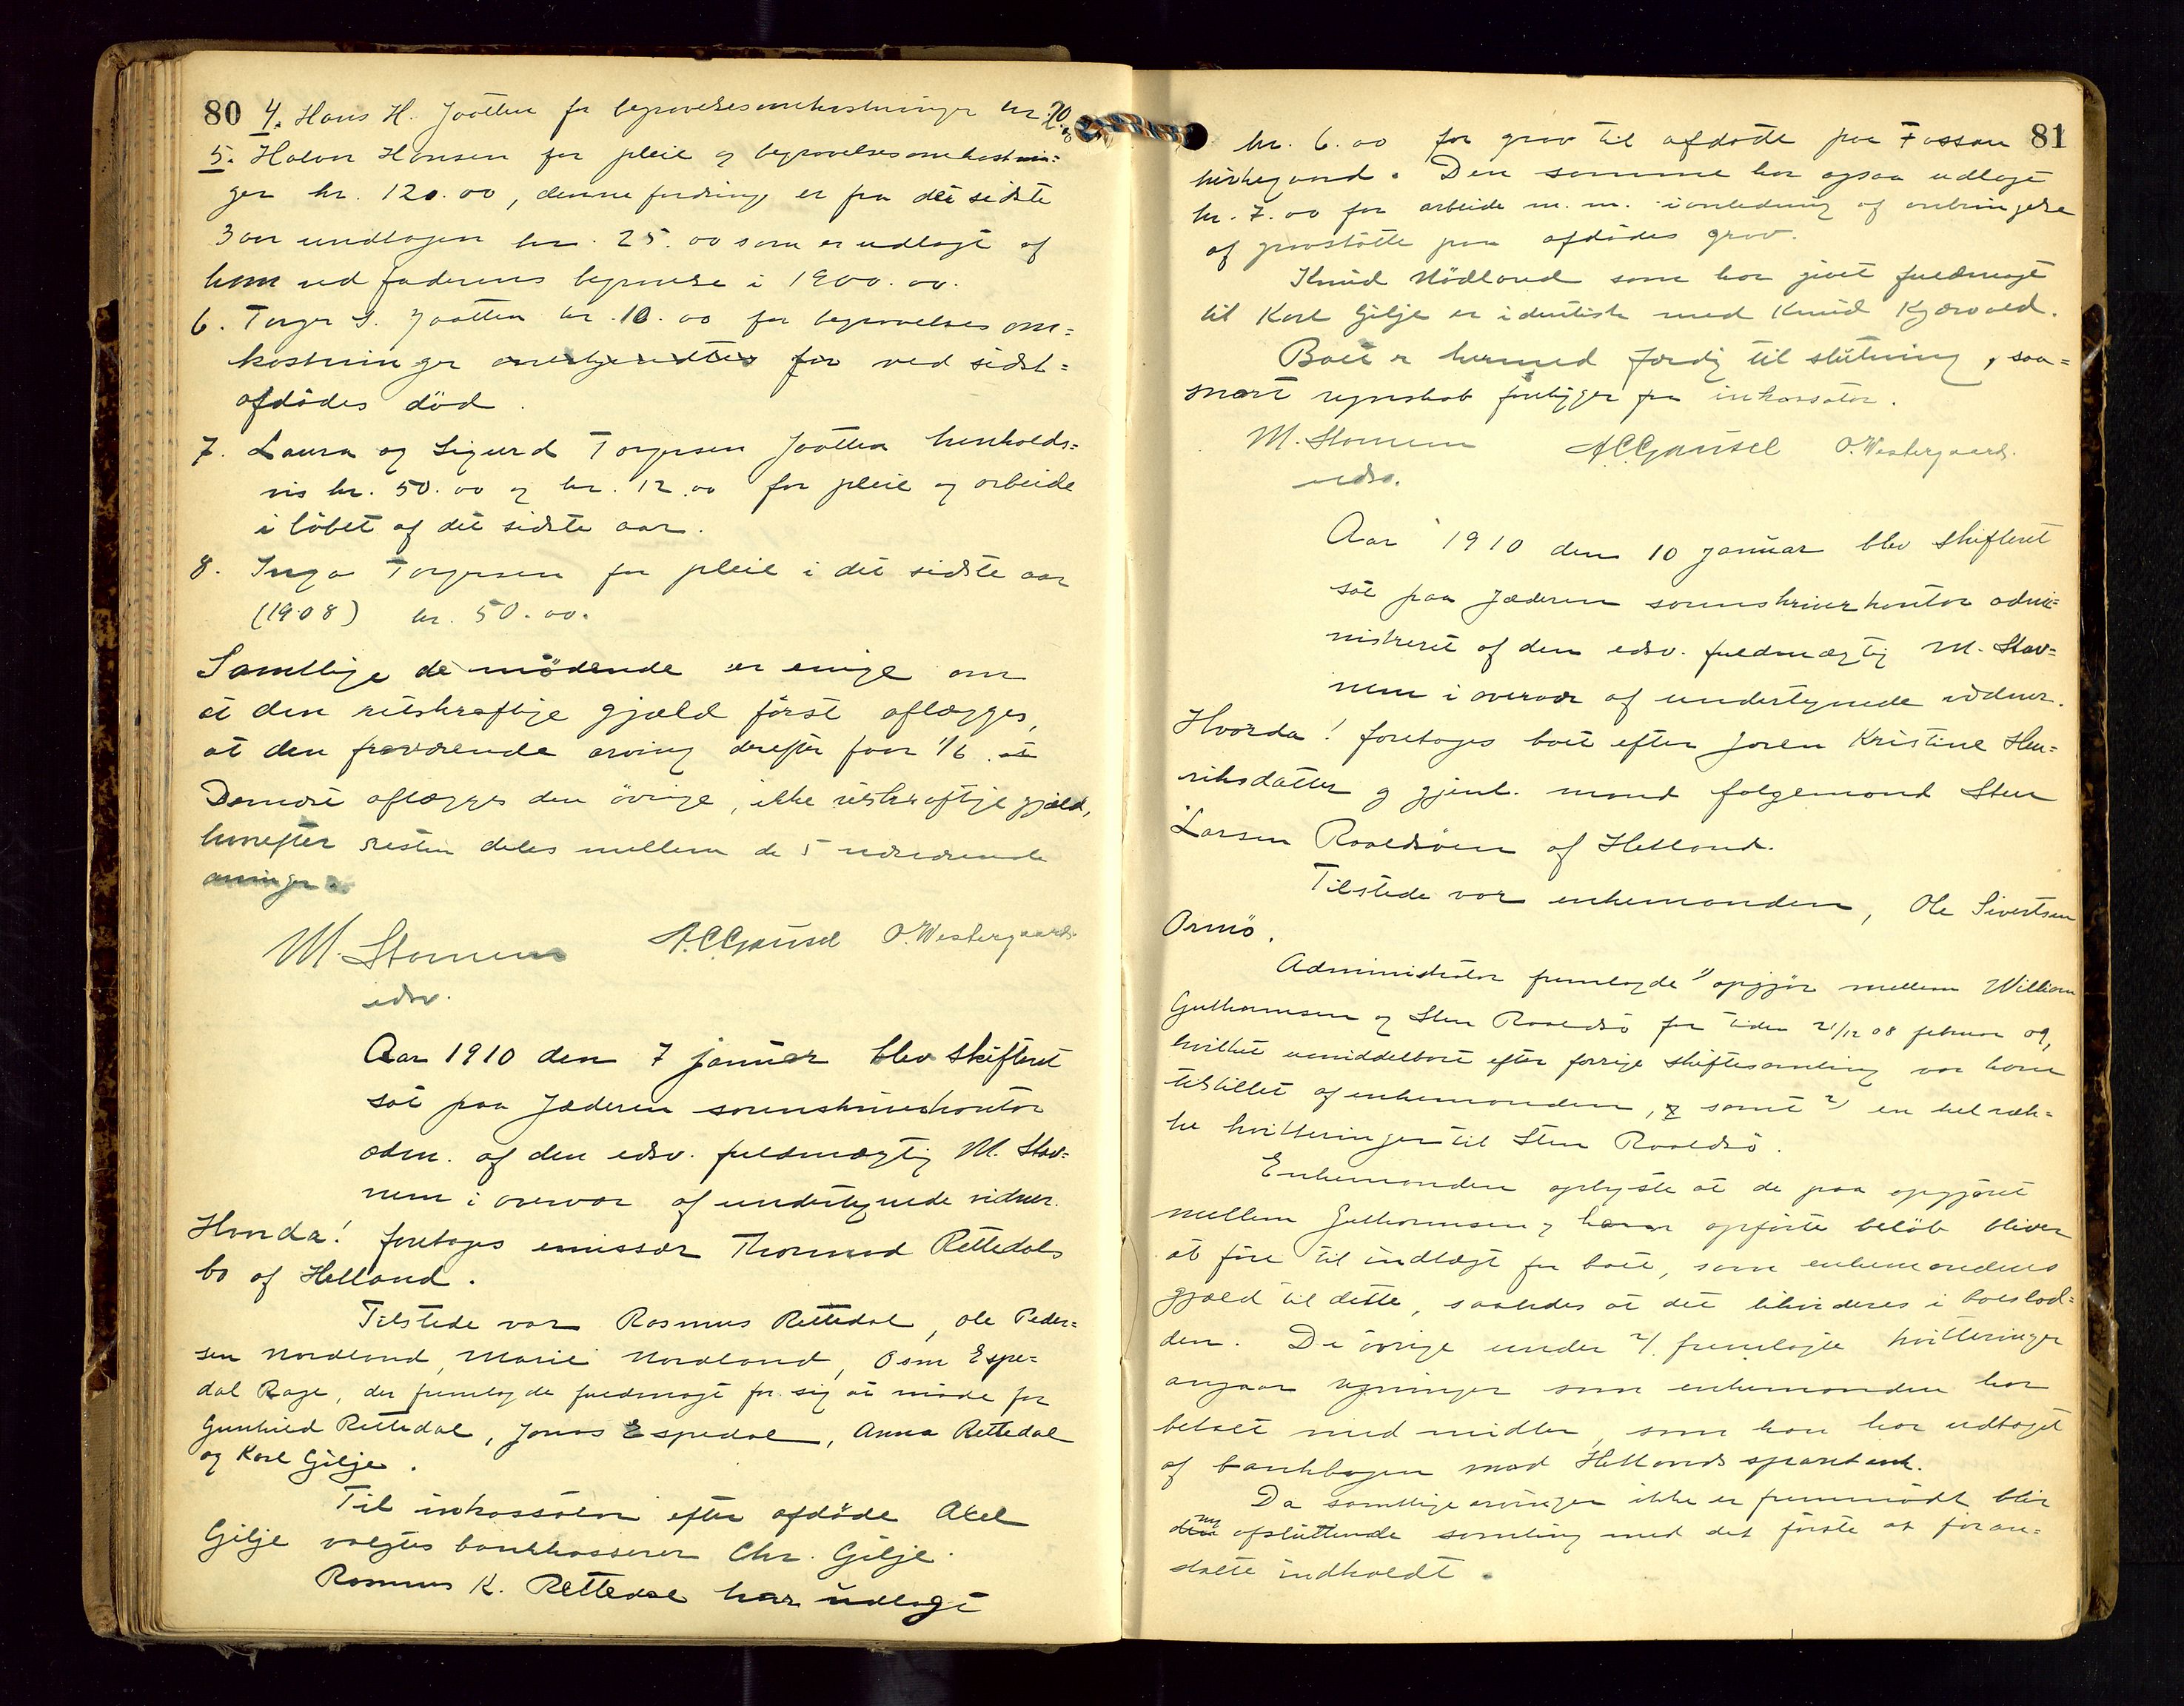 80 4. Hans H. Jaatten for begravelsesomkostninger kr. 20.00
5. Halvor Hansen for pleie og begravelsesomkostnin=
ger kr. 120.00, denne fordring er fra det sidste
3 aar undtagen kr. 25.00 som er udlagt af
ham ved faderens begravelse i 1900.00.
6. Torger S. Jaatten kr. 10.00 for begravelses om=
kostninger for ved sidst=
afdødes død.
7. Laura og Sigurd Torgersen Jaatten henholds=
vis kr. 50.00 og kr. 12.00 for pleie og arbeide
i løbet af det sidste aar.
8. Inga Torgersen for pleie i det sidste aar
(1908) kr. 50.00.
Samtlige de mødende er enige om
at den retskraftige gjæld først aflægges,
at den fraværende arving derefter faar 1/6. at
Dernæst aflægges den øvrige, ikke retskraftige gjæld,
hvorefter resten deles mellem de 5 nærværende
arvinger.
M. Stavnem A.C. Gausel O. Westergaard
edsv.
Aar 1910 den 7 januar blev skifteret
sat paa Jæderen sorenskriverkontor
adm. af den edsv. fuldmægtig M. Stav=
nem i overvær af undertegnede vidner.
Hvorda! foretages emissær Thormod Rettedals
bo af Hetland.
Tilstede var Rasmus Rettedal, Ole Peder=
sen Nordland, Marie Nordland, Osm Espe=
dal Rage, der fremlagde fuldmagt for sig at møde for
Gunhild Rettedal, Jonas Espedal, Anna Rettedal
og Karl Gilje.
Til inkassator efter afdøde Axel
Gilje valgtes bankkasserer Chr. Gilje.
Rasmus K. Rettedal har udlagt
81
kr. 6.00 for grav til afdøde paa Fossan
kirkegaard. Den samme har ogsaa udlagt
kr. 7.00 for arbeide m. m. i anledning af anbringelse
af gravstøtte paa afdødes grav.
Knud Nødland som har givet fuldmagt
til Karl Gilje er identisk med Knud Kjærvold.
Boet er hermed færdig til slutning, saa=
snart regnskab foreligger fra inkassator.
M. Stavnem A.C. Gausel O. Westergaard.
edsv.
Aar 1910 den 10 januar blev skifteret
sat paa Jæderen sorenskriverkontor admi=
nistreret af den edsv. fuldmægtig M. Stav=
nem i overvær af undertegnede vidner.
Hvorda! foretages boet efter Joren Kristine Hen=
riksdatter og gjenl. mand følgemand Sten
Larsen Roaldsøen af Hetland.
Tilstede var enkemanden, Ole Sivertsen
Ormø.
Administrator fremlagde 1) opgjør mellem William
Guthormsen og Sten Roaldsø for tiden 21/12 08 februar 09,
hvilket umiddelbart efter forrige skiftesamling var ham
tilstillet af enkemanden, samt 2) en hel ræk=
ke kvitteringer til Sten Roaldsø.
Enkemanden oplyste at de paa opgjøret
mellem Guthormsen og ham opførte beløb bliver
at føre til indtægt for boet, som enkemandens
gjæld til dette, saaledes at det likvideres i boeslod=
den. De øvrige under 2) fremlagte kvitteringer
angaar regninger som enkemanden har
betalt med midler, som han har udtaget
af bankbogen mod Hetlands sparebank.
Da samtlige arvinger ikke er fremmødt blir
ny afsluttende samling med det første at foran=
stalte indkaldt.